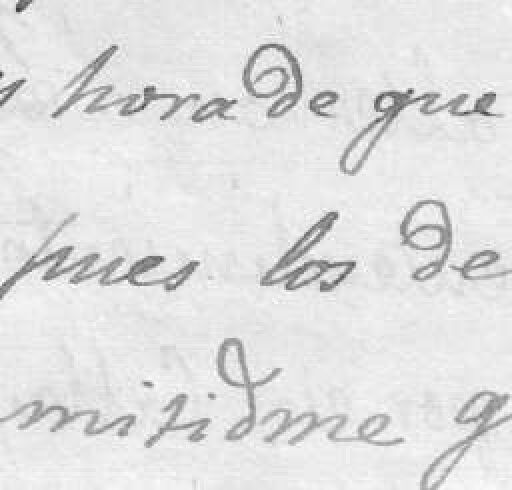 s hora de que
pues los de
mitidme g